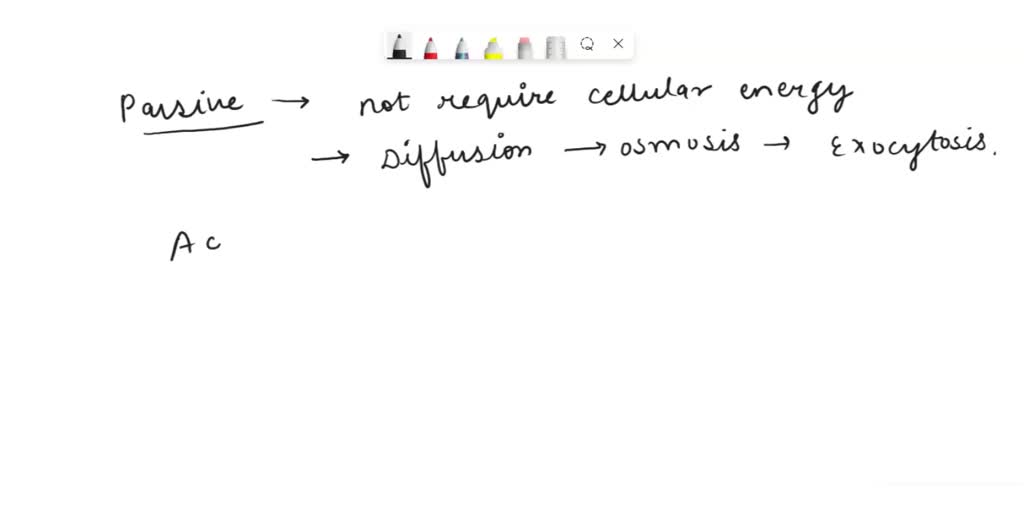 Passive → not require cellular energy
→ Diffusion → osmosis → Exocytosis.
Ac